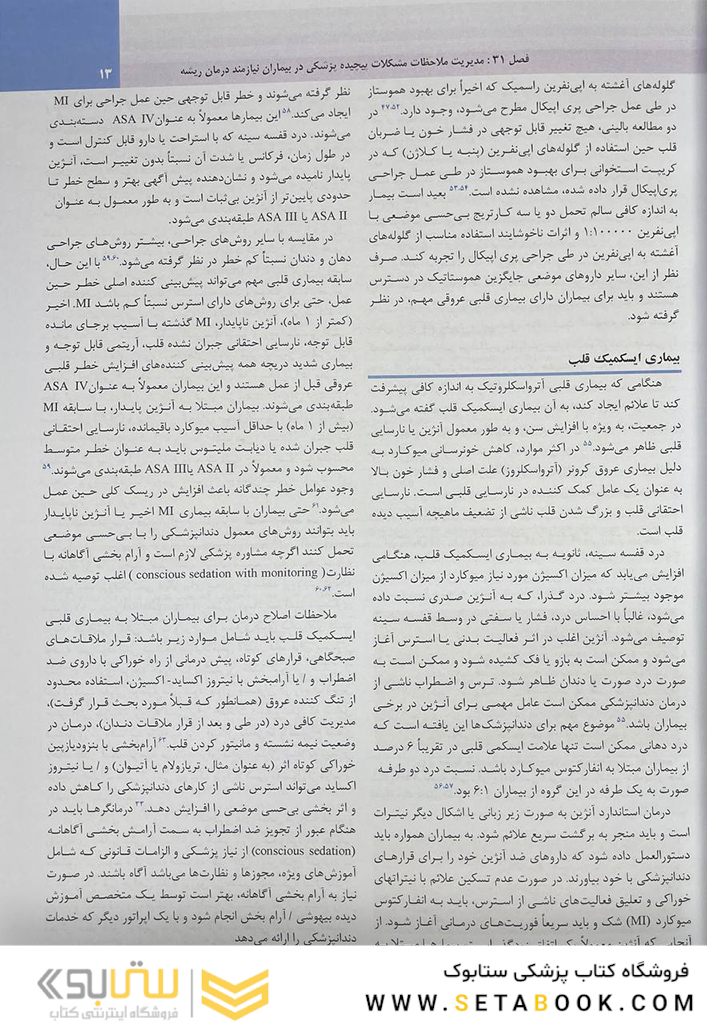 فصل ۳۱ : مدیریت ملاحظات مشکلات پیچیده پزشکی در بیماران نیازمند درمان ریشه
۱۳
گلوله‌های آغشته به اپی‌نفرین راسمیک که اخیراً برای بهبود هموستاز
در طی عمل جراحی پری اپیکال مطرح می‌شود، وجود دارد.۴۷،۵۲ در
دو مطالعه بالینی، هیچ تغییر قابل توجهی در فشار خون یا ضربان
قلب حین استفاده از گلوله‌های اپی‌نفرین (پنبه یا کلاژن) که در
کریپت استخوانی برای بهبود هموستاز در طی عمل جراحی
پری‌اپیکال قرار داده شده، مشاهده نشده است.۵۳،۵۴ بعید است بیمار
به اندازه کافی سالم تحمل دو یا سه کارتریج بی‌حسی موضعی با
اپی‌نفرین ۱:۱۰۰۰۰۰ و اثرات ناخوشایند استفاده مناسب از گلوله‌های
آغشته به اپی‌نفرین در طی جراحی پری اپیکال را تجربه کند. صرف
نظر از این، سایر داروهای موضعی جایگزین هموستاتیک در دسترس
هستند و باید برای بیماران دارای بیماری قلبی عروقی مهم، در نظر
گرفته شود.
بیماری ایسکمیک قلب
هنگامی که بیماری قلبی آترواسکلروتیک به اندازه کافی پیشرفت
کند تا علائم ایجاد کند، به آن بیماری ایسکمیک قلب گفته می‌شود.
در جمعیت، به ویژه با افزایش سن، و به طور معمول آنژین یا نارسایی
قلبی ظاهر می‌شود.۵۵ در اکثر موارد، کاهش خونرسانی میوکارد به
دلیل بیماری عروق کرونر (آترواسکلروز) علت اصلی و فشار خون بالا
به عنوان یک عامل کمک کننده در نارسایی قلبی است. نارسایی
احتقانی قلب و بزرگ شدن قلب ناشی از تضعیف ماهیچه آسیب دیده
قلب است.
درد قفسه سینه، ثانویه به بیماری ایسکمیک قلب، هنگامی
افزایش می‌یابد که میزان اکسیژن مورد نیاز میوکارد از میزان اکسیژن
موجود بیشتر شود. درد گذرا، که به آنژین صدری نسبت داده
می‌شود، غالباً با احساس درد، فشار یا سفتی در وسط قفسه سینه
توصیف می‌شود. آنژین اغلب در اثر فعالیت بدنی یا استرس آغاز
می‌شود و ممکن است به بازو یا فک کشیده شود و ممکن است به
صورت درد صورت یا دندان ظاهر شود. ترس و اضطراب ناشی از
درمان دندانپزشکی ممکن است عامل مهمی برای آنژین در برخی
بیماران باشد.۵۵ موضوع مهم برای دندانپزشک‌ها این یافته است که
درد دهانی ممکن است تنها علامت ایسکمی قلبی در تقریباً ۶ درصد
از بیماران مبتلا به انفارکتوس میوکارد باشد. نسبت درد دو طرفه
صورت به یک طرفه در این گروه از بیماران ۶:۱ بود.۵۶،۵۷
درمان استاندارد آنژین به صورت زیر زبانی یا اشکال دیگر نیترات
است و باید منجر به برگشت سریع علائم شود. به بیماران همواره باید
دستورالعمل داده شود که داروهای ضد آنژین خود را برای قرارهای
دندانپزشکی با خود بیاورند. در صورت عدم تسکین علائم با نیتراتهای
خوراکی و تعلیق فعالیت‌های ناشی از استرس، باید به انفارکتوس
میوکارد (MI) شک و باید سریعاً فوریت‌های درمانی آغاز شود. از
نظر گرفته می‌شوند و خطر قابل توجهی حین عمل جراحی برای MI
ایجاد می‌کند.۵۸ این بیمارها معمولاً به عنوان ASA IV دسته‌بندی
می‌شوند. درد قفسه سینه که با استراحت یا دارو قابل کنترل است و
در طول زمان، فرکانس یا شدت آن نسبتاً بدون تغییر است، آنژین
پایدار نامیده می‌شود و نشان‌دهنده پیش آگهی بهتر و سطح خطر تا
حدودی پایین‌تر از آنژین بی‌ثبات است و به طور معمول به عنوان
ASA II یا ASA III طبقه‌بندی می‌شود.
در مقایسه با سایر روش‌های جراحی، بیشتر روش‌های جراحی
دهان و دندان نسبتاً کم خطر در نظر گرفته می‌شود.۵۹،۶۰ با این حال،
سابقه بیماری قلبی مهم می‌تواند پیش‌بینی کننده اصلی خطر حین
عمل، حتی برای روش‌های دارای استرس نسبتاً کم باشد. MI اخیر
(کمتر از ۱ ماه)، آنژین ناپایدار، MI گذشته با آسیب برجای مانده
قابل توجه، نارسایی احتقانی جبران نشده قلب، آریتمی قابل توجه و
بیماری شدید دریچه همه پیش‌بینی کننده‌های افزایش خطر قلبی
عروقی قبل از عمل هستند و این بیماران معمولاً به عنوان ASA IV
طبقه‌بندی می‌شوند. بیماران مبتلا به آنژین پایدار، با سابقه MI
(بیش از ۱ ماه) با حداقل آسیب میوکارد باقیمانده، نارسایی احتقانی
قلب جبران شده یا دیابت ملیتوس باید به عنوان خطر متوسط
محسوب شود و معمولاً در ASA II یا ASA III طبقه‌بندی می‌شوند.۵۹
وجود عوامل خطر چندگانه باعث افزایش در ریسک کلی حین عمل
می‌شود.۶۱ حتی بیماران با سابقه بیماری MI اخیر یا آنژین ناپایدار
باید بتوانند روش‌های معمول دندانپزشکی را با بی‌حسی موضعی
تحمل کنند اگرچه مشاوره پزشکی لازم است و آرام بخشی آگاهانه با
نظارت( conscious sedation with monitoring ) اغلب توصیه شده
است.۶۰،۶۲
ملاحظات اصلاح درمان برای بیماران مبتلا به بیماری قلبی
ایسکمیک قلب باید شامل موارد زیر باشد: قرار ملاقات‌های
صبحگاهی، قرارهای کوتاه، پیش درمانی از راه خوراکی با داروی ضد
اضطراب و / یا آرامبخش با نیتروز اکساید- اکسیژن، استفاده محدود
از تنگ کننده عروق (همانطور که قبلاً مورد بحث قرار گرفت)،
مدیریت کافی درد (در طی و بعد از قرار ملاقات دندان)، درمان در
وضعیت نیمه نشسته و مانیتور کردن قلب.۶۳ آرام‌بخشی با بنزودیازپین
خوراکی کوتاه اثر (به عنوان مثال، تریازولام یا آتیوان) و / یا نیتروز
اکساید می‌تواند استرس ناشی از کارهای دندانپزشکی را کاهش داده
و اثر بخشی بی‌حسی موضعی را افزایش دهد.۳۳ درمانگرها باید در
هنگام عبور از تجویز ضد اضطراب به سمت آرامش بخشی آگاهانه
(conscious sedation) از نیاز پزشکی و الزامات قانونی که شامل
آموزش‌های ویژه، مجوزها و نظارت‌ها می‌باشد آگاه باشند. در صورت
نیاز به آرام بخشی آگاهانه، بهتر است توسط یک متخصص آموزش
دیده بیهوشی / آرام بخش انجام شود و با یک اپراتور دیگر که خدمات
دندانپزشکی را ارائه می‌دهد
فروشگاه کتاب پزشکی ستابوک
WWW.SETABOOK.COM
ستابوک
فروشگاه اینترنتی کتاب